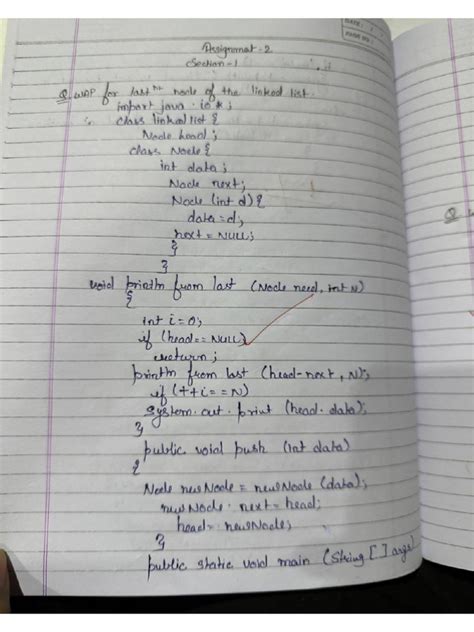 DATE: / /
PAGE NO.:
Assignmat - 2
Section - 1
Q. WAP for last Nth node of the linked list.
import java . io * ;
class linked list {
Node head ;
class Node {
int data ;
Node next;
Node (int d) {
data = d;
next = NULL;
}
}
void printn from last (Node head, int N)
{
int i = 0;
if (head == NULL)
return ;
printn from last (head-next, N);
if (++i == N)
System. out . print (head. data);
}
public void push (int data)
{
Node newNode = newNode (data);
newNode . next = head;
head = newNode;
}
public static void main (String [ ] args)
Q